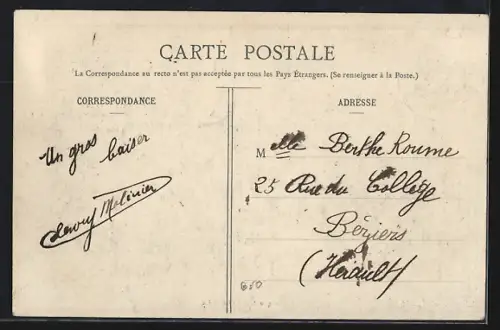 CARTE POSTALE
La Correspondance au recto n'est pas acceptée par tous les Pays Étrangers. (Se renseigner à la Poste.)
CORRESPONDANCE
Un gros baiser
Molinier
ADRESSE
Melle Berthe Roume
25 Rue du Collège
Béziers
(Hérault)
650